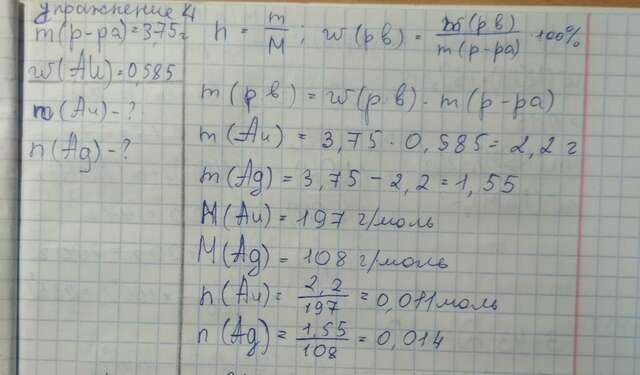 Упражнение 4
m(р-ра)=3,75г
w(Au)=0,585
n(Au)-?
n(Ag)-?
n = m/M ; w(рв) = m(рв)/m(р-ра) · 100%
m(рв) = w(рв) · m(р-ра)
m(Au) = 3,75 · 0,585 = 2,2 г
m(Ag) = 3,75 - 2,2 = 1,55
M(Au) = 197 г/моль
M(Ag) = 108 г/моль
n(Au) = 2,2/197 = 0,011 моль
n(Ag) = 1,55/108 = 0,014